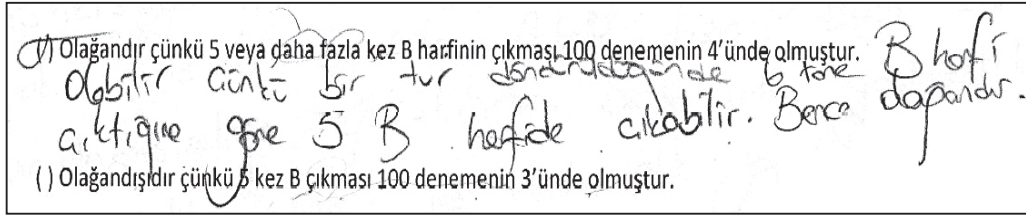 (√) Olağandır çünkü 5 veya daha fazla kez B harfinin çıkması 100 denemenin 4'ünde olmuştur. B harfi
Olabilir Çünkü bir tur döndürüldüğünde 6 tane
çıktığına göre 5 B harfide çıkabilir. Bence olağandır.
( ) Olağandışıdır çünkü 5 kez B çıkması 100 denemenin 3'ünde olmuştur.